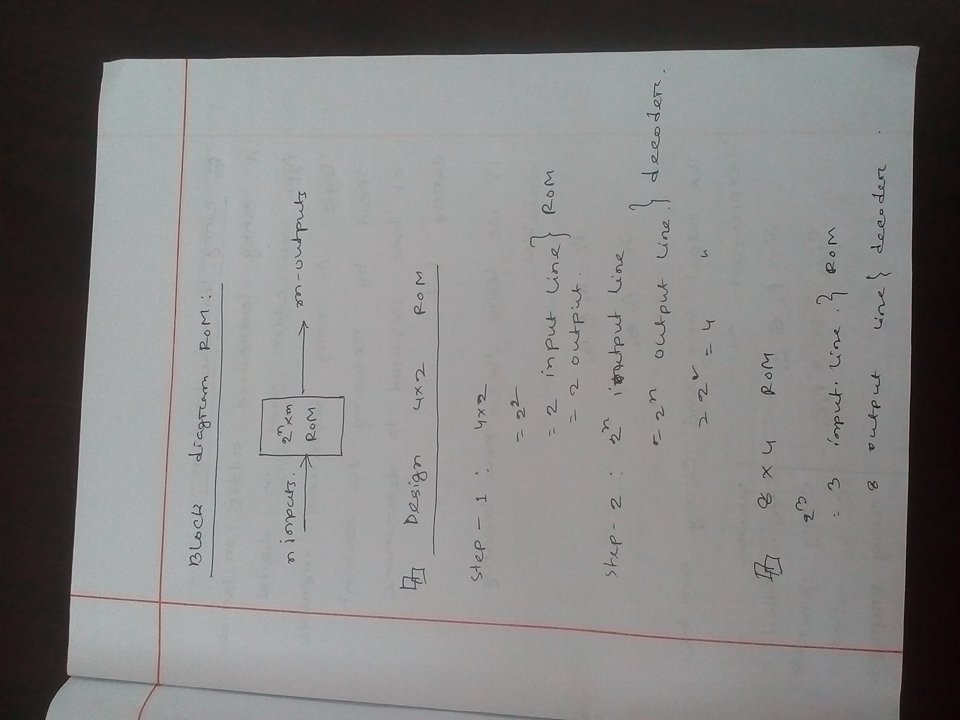 Block diagram ROM:
n inputs. 2ⁿxm ROM m-outputs
Design 4x2 ROM
Step - 1 : 4x2
= 2²
= 2 input line } ROM
= 2 output.
Step - 2 : 2ⁿ input line
= 2ⁿ output line. } decoder.
= 2² = 4 "
8 x 4 ROM
2³
= 3 input. line. } ROM
8 output line } decoder